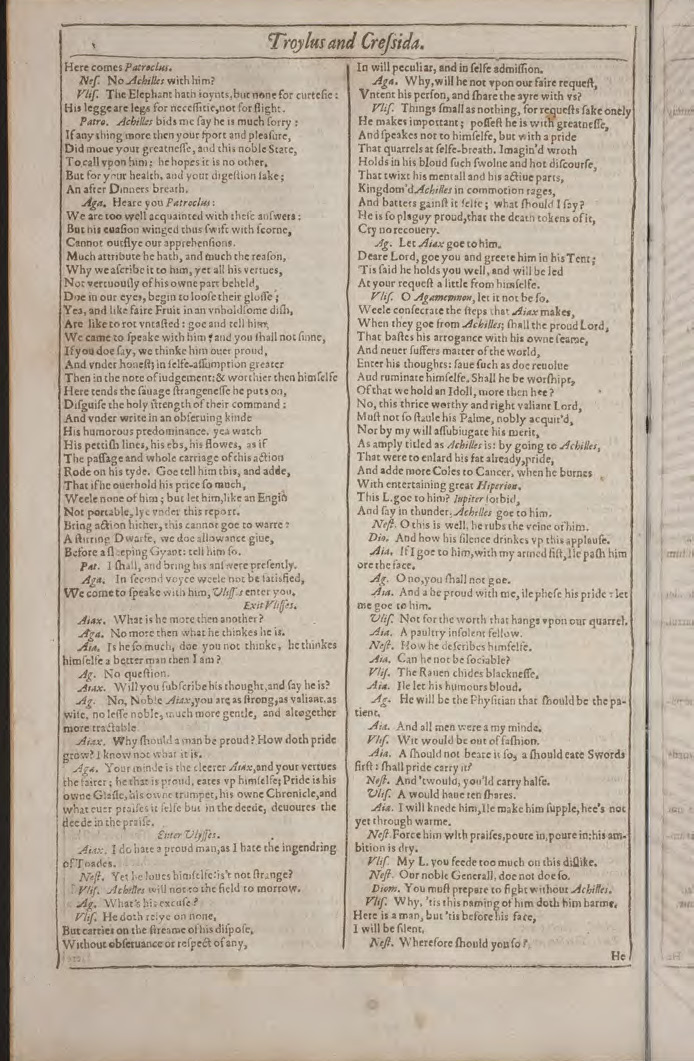 Troylus and Cressida.
Here comes Patroclus.
Nes. No Achilles with him?
Vlis. The Elephant hath ioynts, but none for curtesie:
His legge are legs for necessitie, not for flight.
Patro. Achilles bids me say he is much sorry:
If any thing more then your sport and pleasure,
Did moue your greatnesse, and this noble State,
To call vpon him; he hopes it is no other,
But for your health, and your digestion sake;
An after Dinners breath.
Aga. Heare you Patroclus:
We are too well acquainted with these answers:
But his euasion winged thus swift with scorne,
Cannot outflye our apprehensions.
Much attribute he hath, and much the reason,
Why we ascribe it to him, yet all his vertues,
Not vertuously of his owne part beheld,
Doe in our eyes, begin to loose their glosse;
Yea, and like faire Fruit in an vnholdsome dish,
Are like to rot vntasted: goe and tell him,
We came to speake with him; and you shall not sinne,
If you doe say, we thinke him ouer proud,
And vnder honest; in selfe-assumption greater
Then in the note of iudgement: & worthier then himselfe
Here tends the sauage strangenesse he puts on,
Disguise the holy strength of their command:
And vnder write in an obseruing kinde
His humorous predominance, yea watch
His pettish lines, his ebs, his flowes, as if
The passage and whole carriage of this action
Rode on his tyde. Goe tell him this, and adde,
That if he ouerhold his price so much,
Weele none of him; but let him, like an Engin
Not portable, lye vnder this report.
Bring action hither, this cannot goe to warre:
A stirring Dwarfe, we doe allowance giue,
Before a sleeping Gyant: tell him so.
Pat. I shall, and bring his answere presently.
Aga. In second voyce weele not be satisfied,
We come to speake with him, Vlisses enter you.
Exit Vlisses.
Aiax. What is he more then another?
Aga. No more then what he thinkes he is.
Aia. Is he so much, doe you not thinke, he thinkes
himselfe a better man then I am?
Ag. No question.
Aiax. Will you subscribe his thought, and say he is?
Ag. No, Noble Aiax, you are as strong, as valiant, as
wise, no lesse noble, much more gentle, and altogether
more tractable.
Aiax. Why should a man be proud? How doth pride
grow? I know not what it is.
Aga. Your minde is the cleerer Aiax, and your vertues
the fairer; he that is proud, eates vp himselfe; Pride is his
owne Glasse, his owne trumpet, his owne Chronicle, and
what euer praises it selfe but in the deede, deuoures the
deede in the praise.
Enter Vlysses.
Aiax. I do hate a proud man, as I hate the ingendring
of Toades.
Nest. Yet he loues himselfe: is't not strange?
Vlis. Achelles will not to the field to morrow.
Ag. What's his excuse?
Vlis. He doth relye on none,
But carries on the streame of his dispose,
Without obseruance or respect of any,
In will peculiar, and in selfe admission.
Aga. Why, will he not vpon our faire request,
Vntent his person, and share the ayre with vs?
Vlis. Things small as nothing, for requests sake onely
He makes important; possest he is with greatnesse,
And speakes not to himselfe, but with a pride
That quarrels at selfe-breath. Imagin'd wroth
Holds in his bloud such swolne and hot discourse,
That twixt his mentall and his actiue parts,
Kingdom'd Achilles in commotion rages,
And batters gainst it selfe; what should I say?
He is so plaguy proud, that the death tokens of it,
Cry no recouery.
Ag. Let Aiax goe to him.
Deare Lord, goe you and greete him in his Tent;
'Tis said he holds you well, and will be led
At your request a little from himselfe.
Vlis. O Agamemnon, let it not be so.
Weele consecrate the steps that Aiax makes,
When they goe from Achilles; shall the proud Lord,
That bastes his arrogance with his owne seame,
And neuer suffers matter of the world,
Enter his thoughts: saue such as doe reuolue
And ruminate himselfe. Shall he be worshipt,
Of that we hold an Idoll, more then hee?
No, this thrice worthy and right valiant Lord,
Must not so staule his Palme, nobly acquir'd,
Nor by my will assubiugate his merit,
As amply titled as Achilles is: by going to Achilles,
That were to enlard his fat already, pride,
And adde more Coles to Cancer, when he burnes
With entertaining great Hiperion.
This L. goe to him? Iupiter forbid,
And say in thunder, Achilles goe to him.
Nest. O this is well, he rubs the veine of him.
Dio. And how his silence drinkes vp this applause.
Aia. If I goe to him, with my armed fist, Ile pash him
ore the face.
Ag. O no, you shall not goe.
Aia. And a be proud with me, ile phese his pride: let
me goe to him.
Vlis. Not for the worth that hangs vpon our quarrel.
Aia. A paultry insolent fellow.
Nest. How he describes himselfe.
Aia. Can he not be sociable?
Vlis. The Rauen chides blacknesse.
Aia. Ile let his humours bloud.
Ag. He will be the Physitian that should be the pa-
tient.
Aia. And all men were a my minde.
Vlis. Wit would be out of fashion.
Aia. A should not beare it so, a should eate Swords
first: shall pride carry it?
Nest. And 'twould, you'ld carry halfe.
Vlis. A would haue ten shares.
Aia. I will knede him, Ile make him supple, hee's not
yet through warme.
Nest. Force him with praises, poure in, poure in: his am-
bition is dry.
Vlis. My L. you feede too much on this dislike.
Nest. Our noble Generall, doe not doe so.
Diom. You must prepare to fight without Achilles.
Vlis. Why, 'tis this naming of him doth him harme.
Here is a man, but 'tis before his face,
I will be silent.
Nest. Wherefore should you so?
He